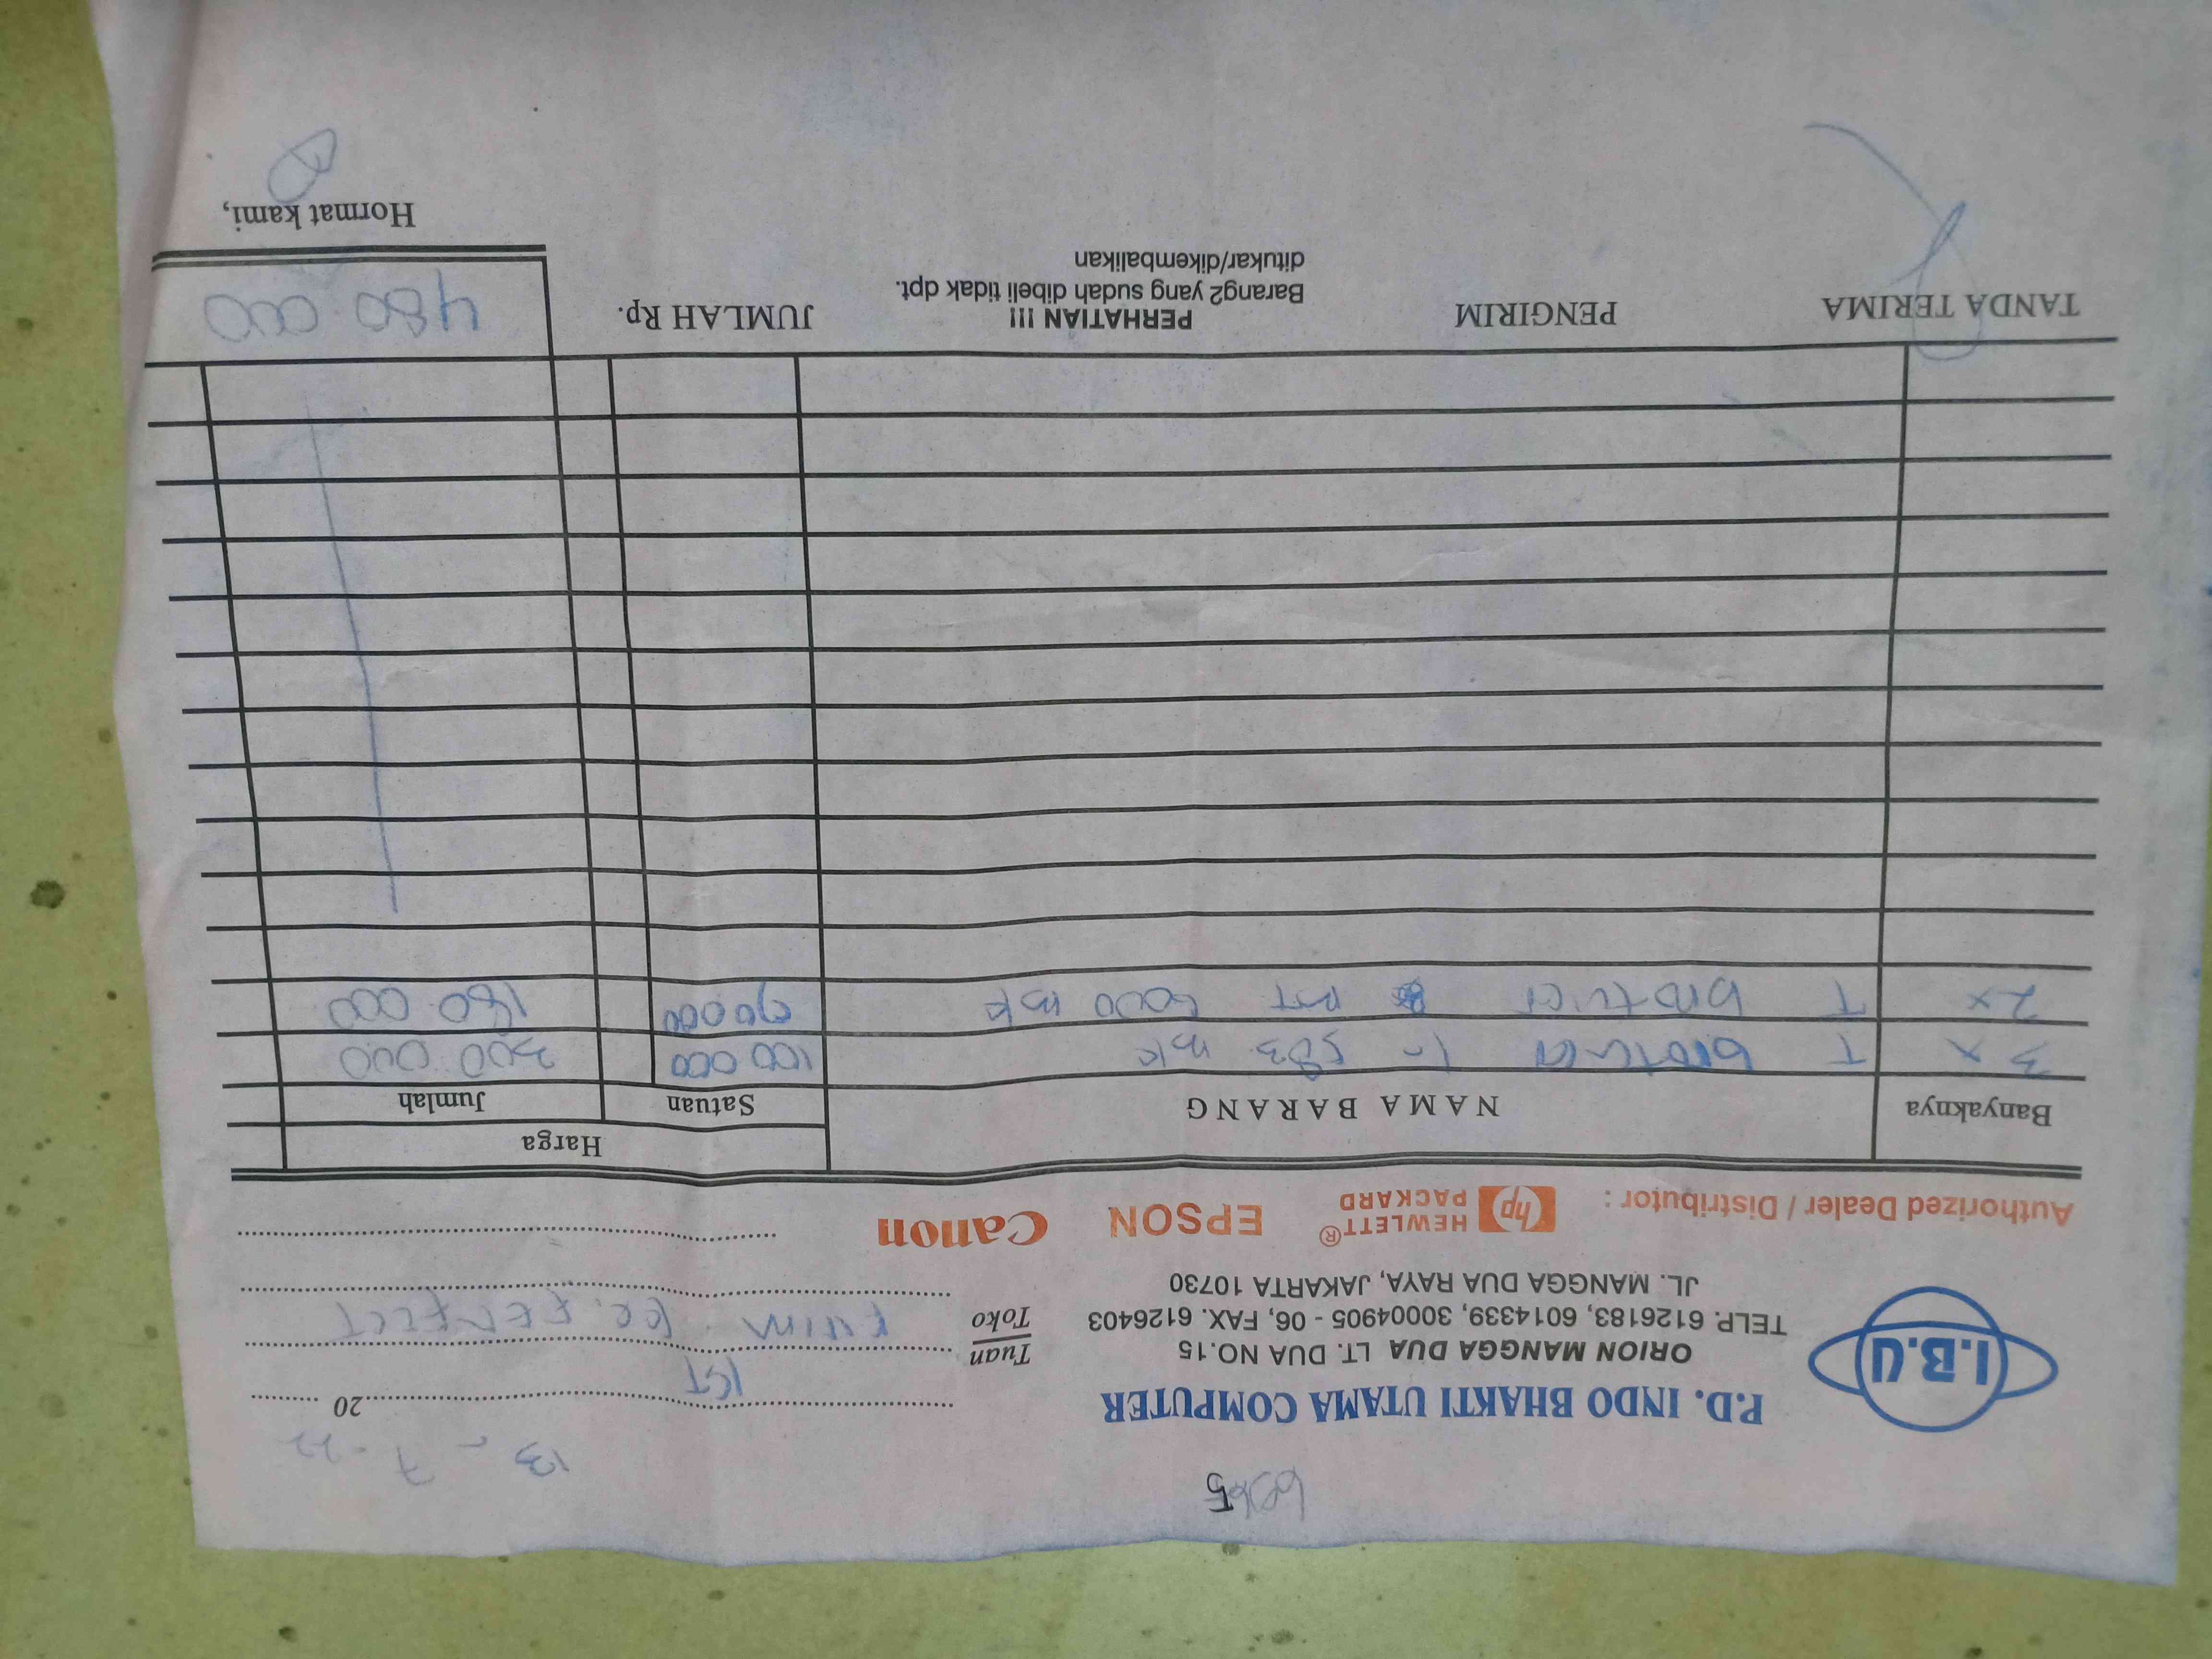 13 - 7 - 22
I.B.U
P.D. INDO BHAKTI UTAMA COMPUTER
20
ORION MANGGA DUA LT. DUA NO.15
TELP. 6126183, 6014339, 30004905 - 06, FAX. 6126403
JL. MANGGA DUA RAYA, JAKARTA 10730
Tuan
Toko
Authorized Dealer / Distributor : hp HEWLETT® PACKARD EPSON Canon
Banyaknya NAMA BARANG Harga
Satuan Jumlah
3 x T 583 100 000 300 000
2 x T 6000 90 000 180.000
TANDA TERIMA PENGIRIM PERHATIAN !!! JUMLAH Rp. 480.000
Barang2 yang sudah dibeli tidak dpt.
ditukar/dikembalikan
Hormat kami,